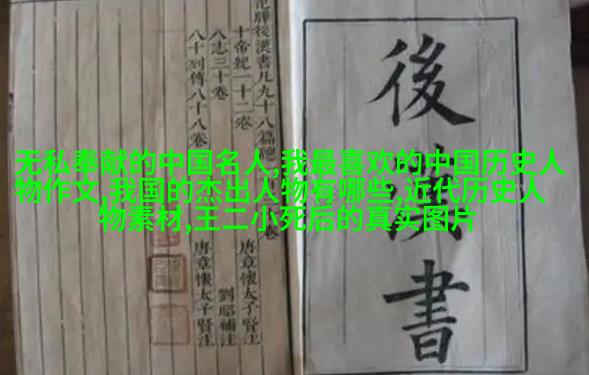 无私奉献的中国名人,我最喜欢的中国历史人
物作文,我国的杰出人物有哪些,近代历史人
物素材,王二小死后的真实图片
後漢書
後漢書凡九十八篇總
十帝紀一十二卷 唐章懷太子賢注
八志三十卷 劉昭補注
八十列傳八十八卷 唐章懷太子賢注